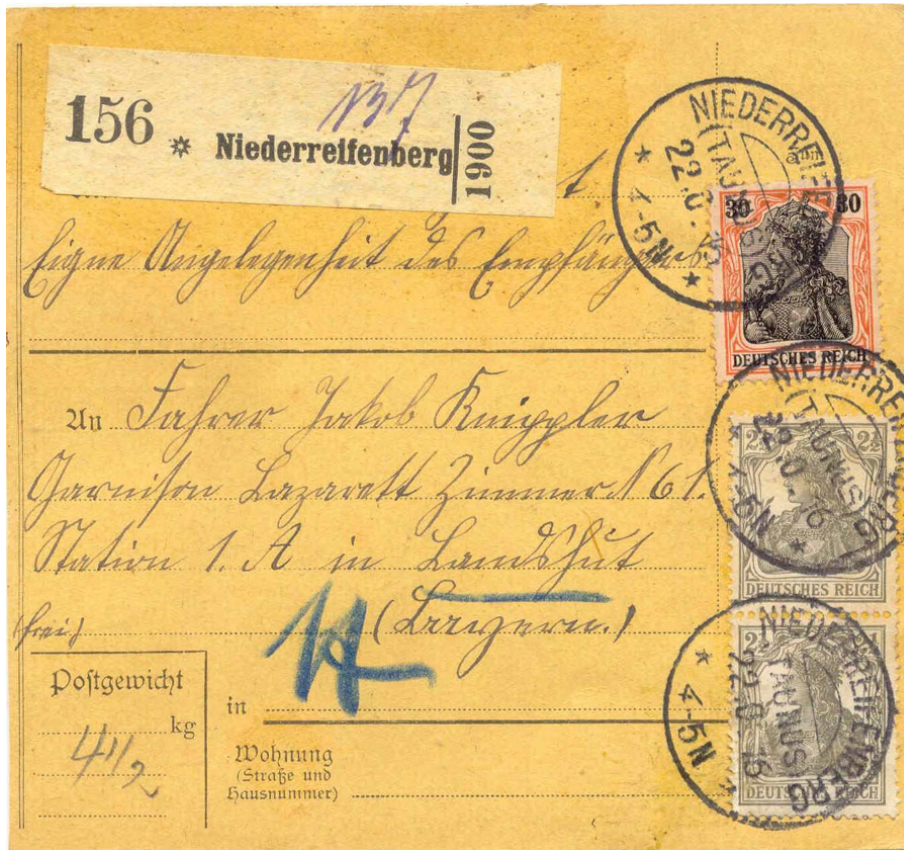 156 * Niederreifenberg 1900
137
Eigne Angelegenheit des Empfängers
An Fahrer Jakob Knippler
Garnison Lazarett Zimmer N 61.
Station 1. A in Landshut
(frei) (Bayern.)
in
Postgewicht
4 1/2 kg
Wohnung
(Straße und
Hausnummer)
NIEDERREIFENBERG
(TAUNUS)
4-5N
30 30
DEUTSCHES REICH
NIEDERREIFENBERG
(TAUNUS)
4-5N
2½ 2½
DEUTSCHES REICH
NIEDERREIFENBERG
(TAUNUS)
4-5N
DEUTSCHES REICH